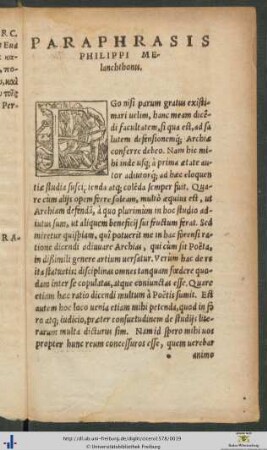 PARAPHRASIS
PHILIPPI ME-
lanchthonis.
EGo nisi parum gratus existi-
mari uelim, hanc meam dicē-
di facultatem, si qua est, ad sa
lutem defensionemq́; Archiæ
conferre debeo. Nam hic mi-
hi inde usq; à prima ætate au-
tor adiutorq́; ad hæc eloquen-
tiæ studia suscipienda atq; colēda semper fuit. Qua-
re cum alijs opem ferre soleam, multò æquius est, ut
Archiam defendā, à quo plurimum in hoc studio ad-
iutus sum, ut aliquem beneficij sui fructum ferat. Sed
miretur quispiam, quō potuerit me in hac forensi ra-
tione dicendi adiuuare Archias, qui cùm sit Poëta,
in dissimili genere artium uersatur. Verùm hac de re
ita statuatis; disciplinas omnes tanquam fœdere quo-
dam inter se copulatas, atque coniunctas esse. Quare
etiam hæc ratio dicendi multum à Poëtis sumit. Est
autem hoc loco uenia etiam mihi petenda, quod in fo
ro atq; iudicio, præter consuetudinem de studijs lite-
rarum multa dicturus sim. Nam id spero mihi uos
propter hunc reum concessuros esse, quem uerebar
animo
R.C.
Per-
RA-
http://dl.ub.uni-freiburg.de/diglit/cicero1578/0039
© Universitätsbibliothek Freiburg